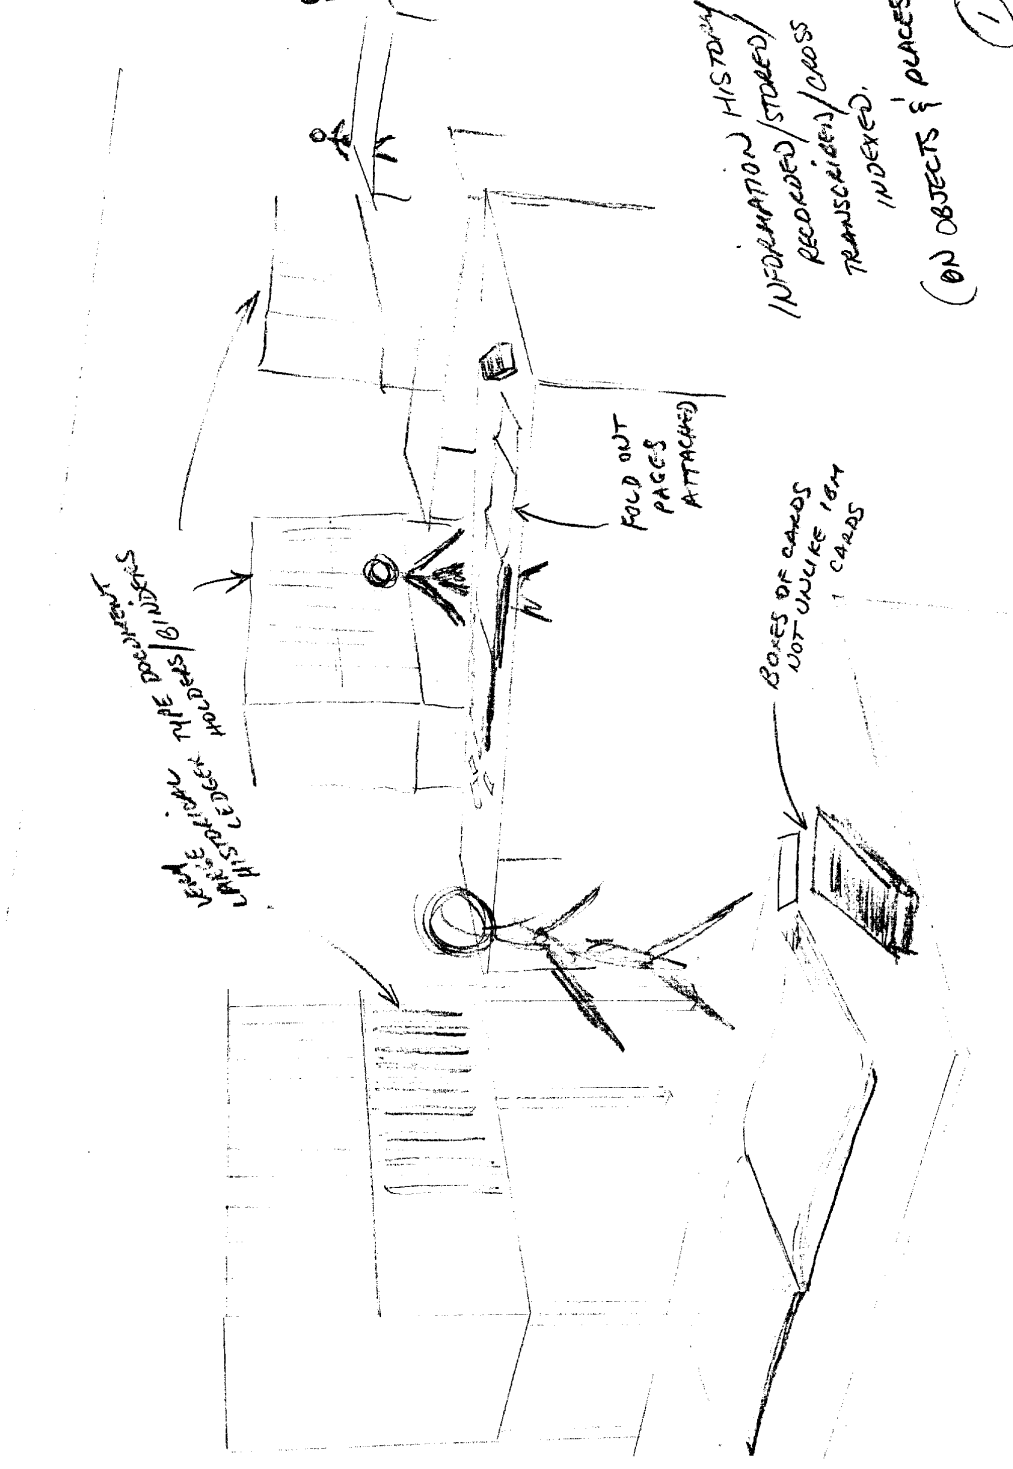 VERY
LARGE
HISTORICAL
LEDGER TYPE DOCUMENT
HOLDERS/BINDERS
FOLD OUT
PAGES
ATTACHED
BOXES OF CARDS
NOT UNLIKE IBM
CARDS
INFORMATION HISTORY
RECORDED/STORED/
TRANSCRIBED/CROSS
INDEXED.
(ON OBJECTS & PLACES
1